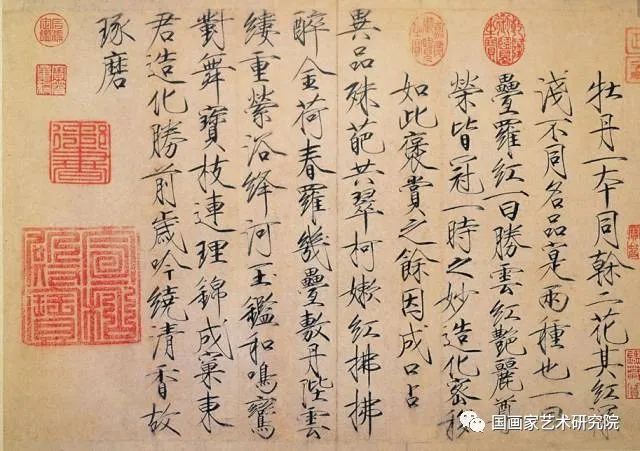 牡丹一本同榦二花其紅深
淺不同名品寔兩種也一曰
疊羅紅一曰勝雲紅艷麗尊
榮皆冠一時之妙造化密移
如此褒賞之餘因成口占
異品殊葩共翠柯嫩紅拂拂
醉金荷春羅幾疊敷丹陛雲
縷重縈浴絳河玉鑑和鳴鸞
對舞寶枝連理錦成窠東
君造化勝前歲吟繞清香故
琢磨
国画家艺术研究院